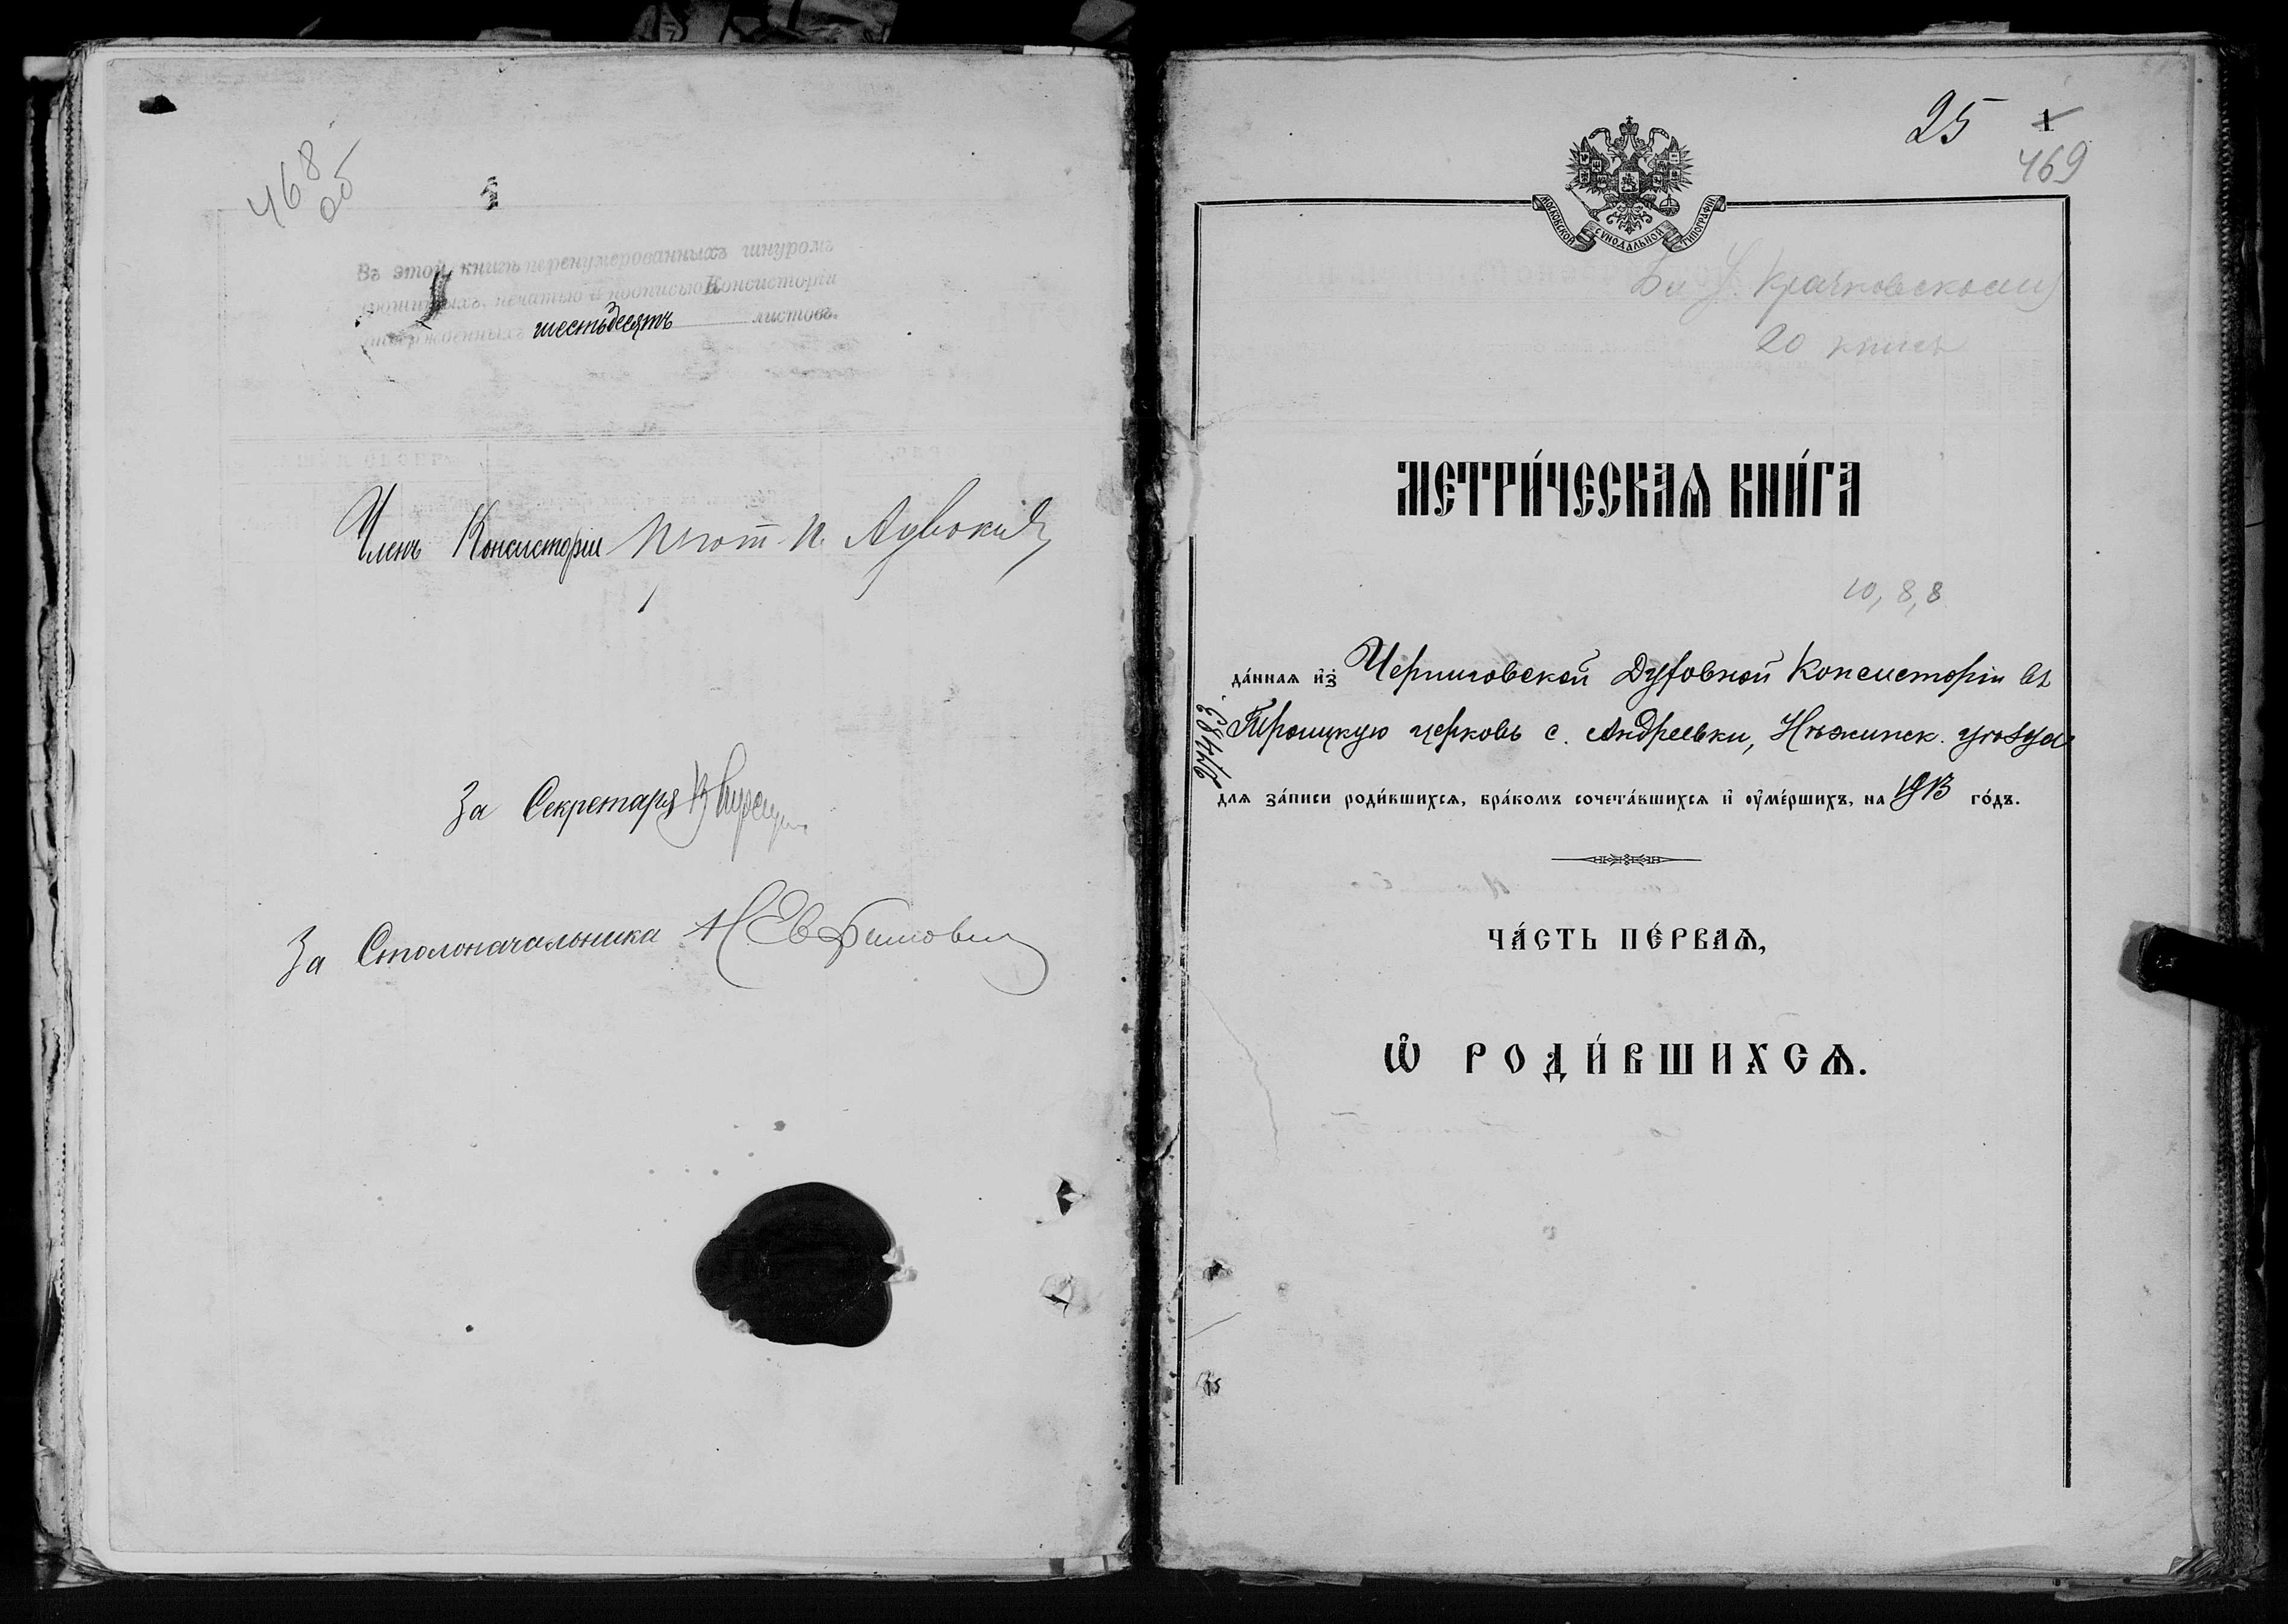 468
об
Въ этой книгѣ перенумерованныхъ шнуромъ
печатью и подписью Консисторіи
шестьдесятъ листовъ.
Членъ Консисторіи Прот. П.
За Секретаря
За Столоначальника
25 1
469
МОСКОВСКОЙ СѴНОДАЛЬНОЙ ТИПОГРАФІИ
Крачковскому
20
МЕТРИ́ЧЕСКАѦ КНИ́ГА
10, 8, 8
да́нная и҆з̾ Черниговской Духовной Консисторіи въ
Троицкую церковь с. Андреевки, Нѣжинск. уѣзда
27483
для за́писи роди́вшихся, бра́комъ сочета́вшихся и҆ ᲂу҆ме́ршихъ, на 1913 го́дъ.
ЧА́СТЬ ПЕ́РВАѦ,
Ѽ РОДИ́ВШИХСѦ.